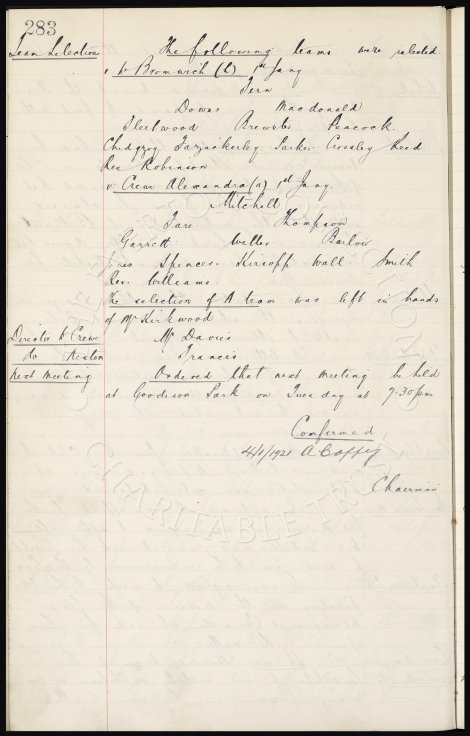 283
Team Selection The following teams were selected
v W Bromwich (h) 1st Jany
Fern
Downs Macdonald
Fleetwood Brewster Peacock.
Chedgzoy Fazackerley Parker Crossley Reed
Res Robinson
v Crewe Alexandra (a) 1st Jany.
Mitchell
Fare. Thompson
Garrett Weller Barlow
Jones Spencer. Kirsopp Wall. Smith
Res. Williams.
The selection of A team was left in hands
of Mr Kirkwood
Director to Crewe Mr Davies
to Francis
Next Meeting Ordered that next meeting be held
at Goodison Park on Tuesday at 7.30pm
Confirmed
4/1/1921 A Coffey
Chairman
CHARITABLE TRUST